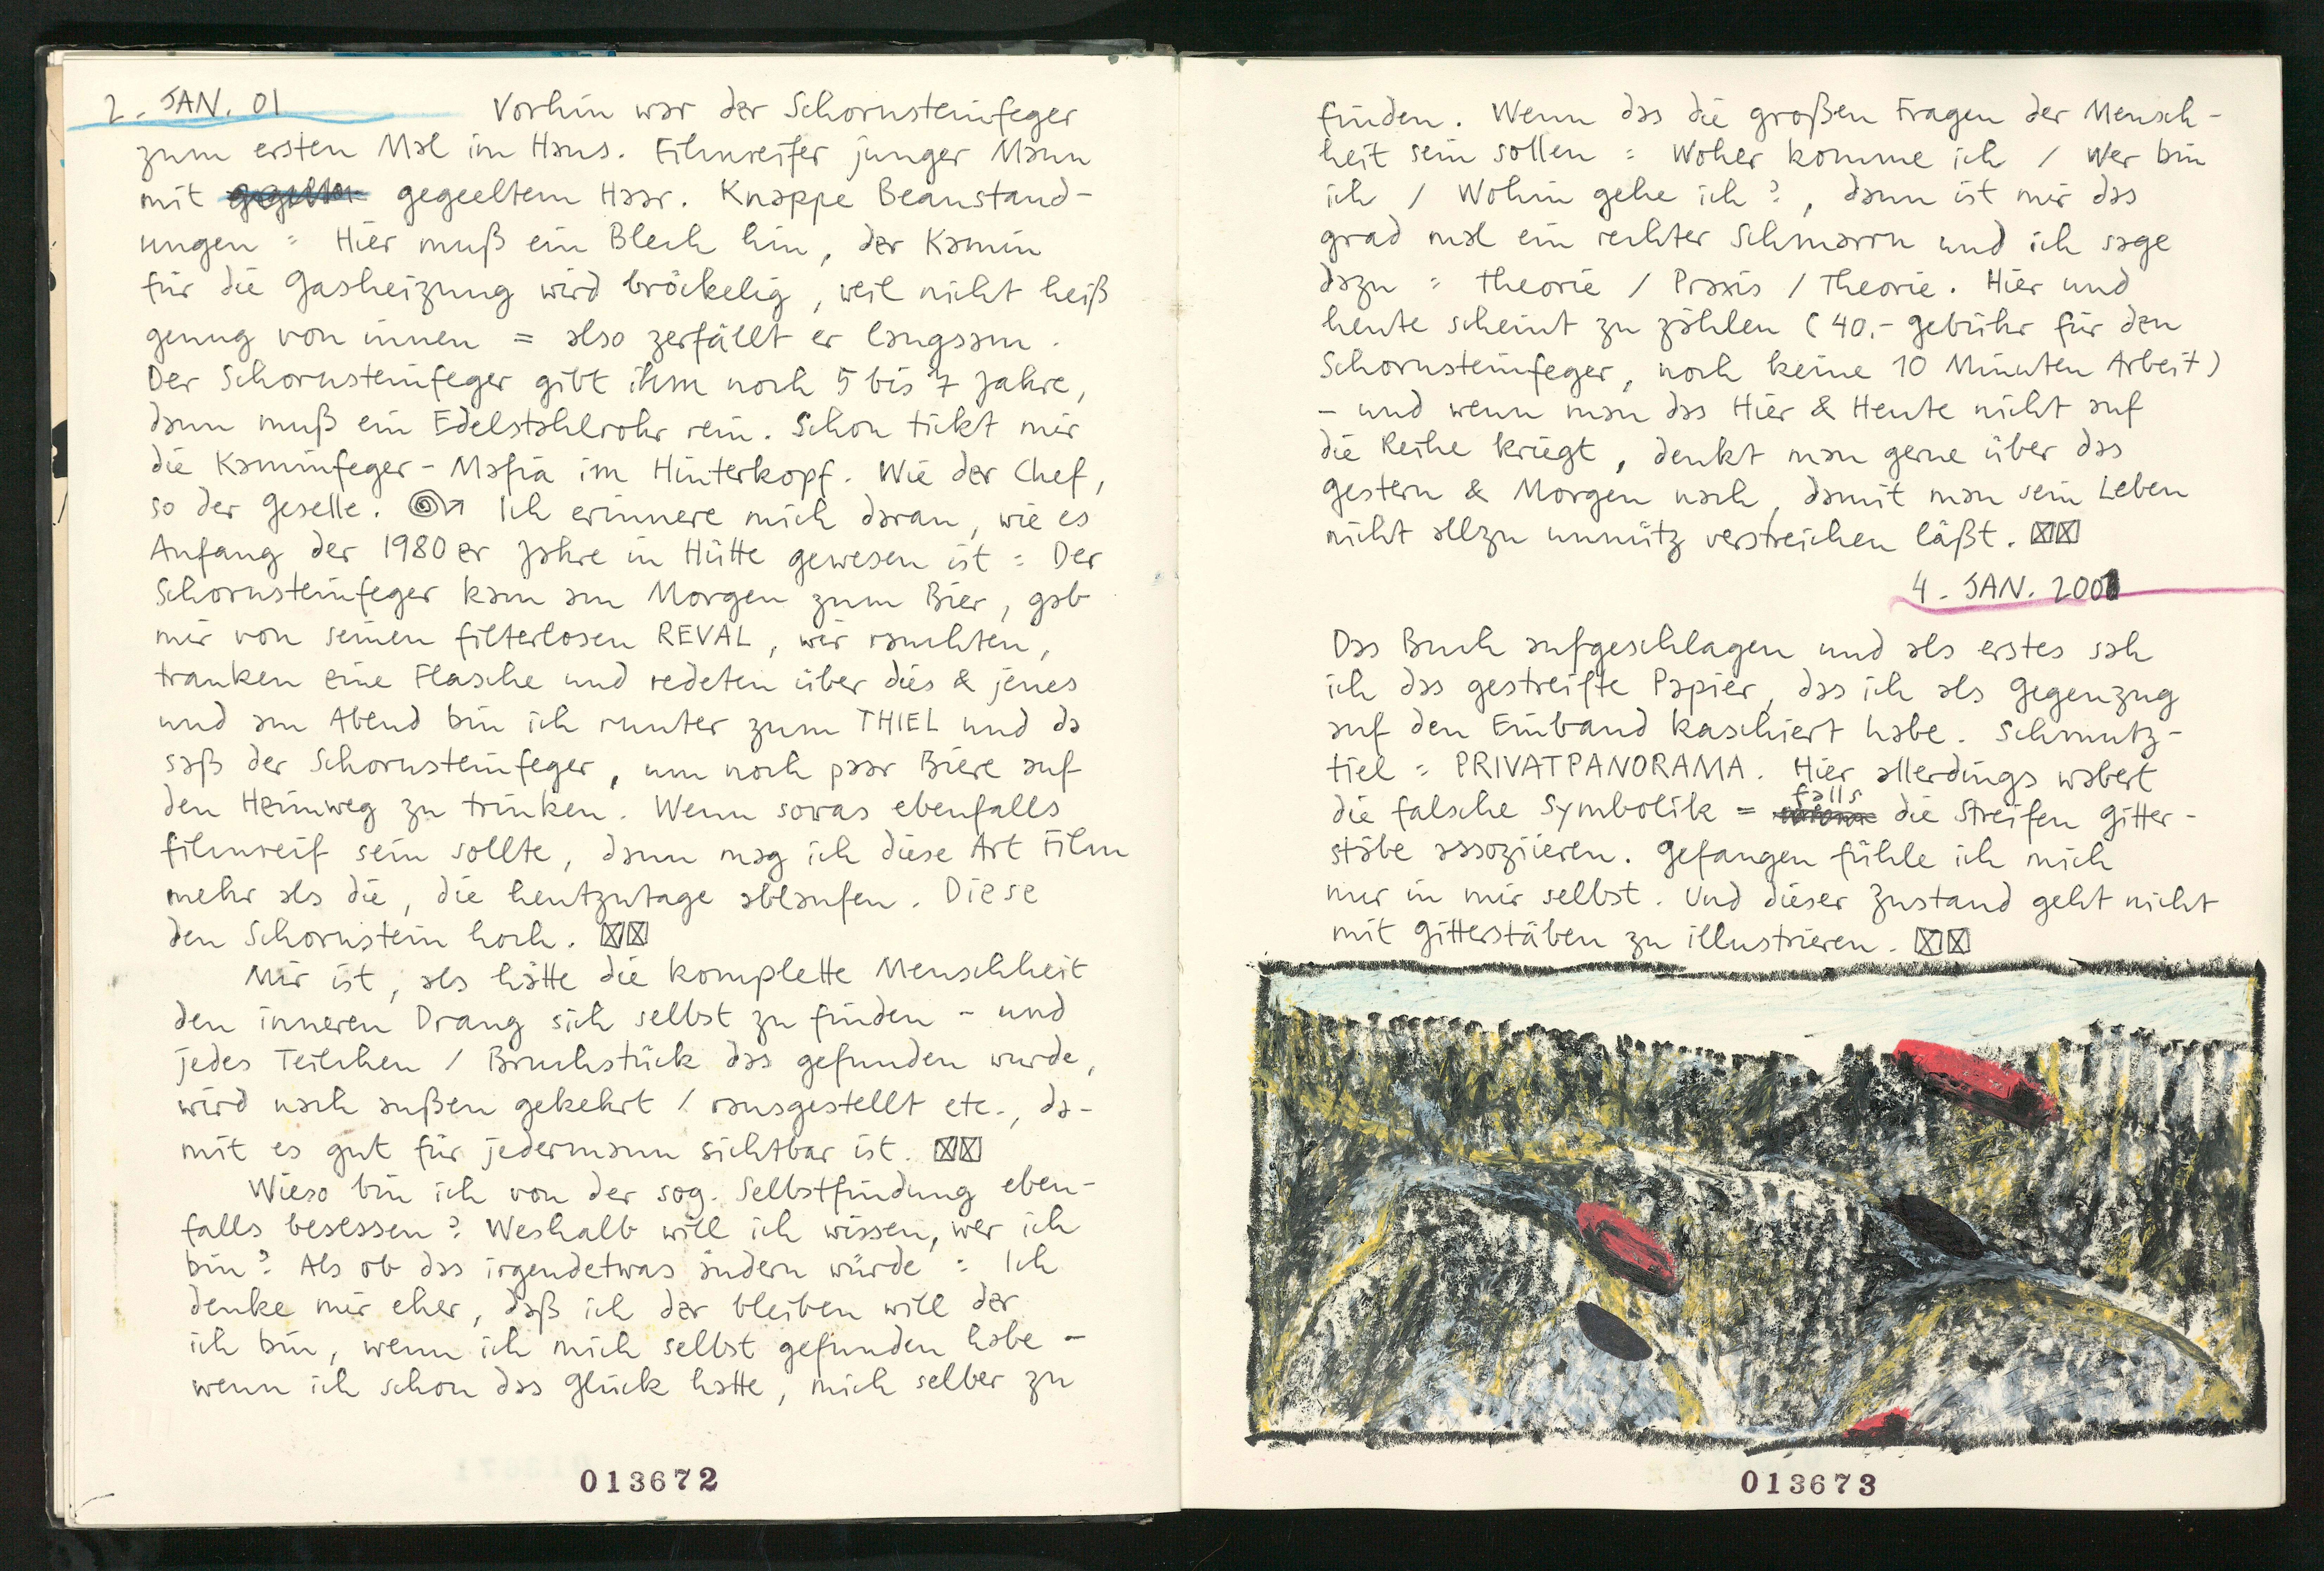 2. JAN. 01 Vorhin war der Schornsteinfeger
zum ersten Mal im Haus. Filmreifer junger Mann
mit gegeeltem Haar. Knappe Beanstand-
ungen = Hier muß ein Blech hin, der Kamin
für die Gasheizung wird bröckelig, weil nicht heiß
genug von innen = also zerfällt er langsam.
Der Schornsteinfeger gibt ihm noch 5 bis 7 Jahre,
dann muß ein Edelstahlrohr rein. Schon tickt mir
die Kaminfeger-Mafia im Hinterkopf. Wie der Chef,
so der Geselle. Ich erinnere mich daran, wie es
Anfang der 1980er Jahre in Hütte gewesen ist = Der
Schornsteinfeger kam am Morgen zum Bier, gab
mir von seinen filterlosen REVAL, wir rauchten,
tranken eine Flasche und redeten über dies & jenes
und am Abend bin ich runter zum THIEL und da
saß der Schornsteinfeger, um noch paar Biere auf
den Heimweg zu trinken. Wenn sowas ebenfalls
filmreif sein sollte, dann mag ich diese Art Film
mehr als die, die heutzutage ablaufen. Diese
den Schornstein hoch. ☒☒
Mir ist, als hätte die komplette Menschheit
den inneren Drang sich selbst zu finden - und
jedes Teilchen / Bruchstück das gefunden wurde,
wird nach außen gekehrt / rausgestellt etc., da-
mit es gut für jedermann sichtbar ist. ☒☒
Wieso bin ich von der sog. Selbstfindung eben-
falls besessen? Weshalb will ich wissen, wer ich
bin? Als ob das irgendetwas ändern würde = Ich
denke mir eher, daß ich der bleiben will der
ich bin, wenn ich mich selbst gefunden habe -
wenn ich schon das Glück hatte, mich selber zu
013672
finden. Wenn das die großen Fragen der Mensch-
heit sein sollen = Woher komme ich / Wer bin
ich / Wohin gehe ich?, dann ist mir das
grad mal ein rechter Schmarrn und ich sage
dazu = Theorie / Praxis / Theorie. Hier und
heute scheint zu zählen (40.- Gebühr für den
Schornsteinfeger, noch keine 10 Minuten Arbeit)
- und wenn man das Hier & Heute nicht auf
die Reihe kriegt, denkt man gerne über das
Gestern & Morgen nach, damit man sein Leben
nicht allzu unnütz verstreichen läßt. ☒☒
4. JAN. 2001
Das Buch aufgeschlagen und als erstes sah
ich das gestreifte Papier, das ich als Gegenzug
auf den Einband kaschiert habe. Schmutz-
tiel = PRIVATPANORAMA. Hier allerdings wabert
die falsche Symbolik = falls die Streifen Gitter-
stäbe assoziieren. Gefangen fühle ich mich
nur in mir selbst. Und dieser Zustand geht nicht
mit Gitterstäben zu illustrieren. ☒☒
013673